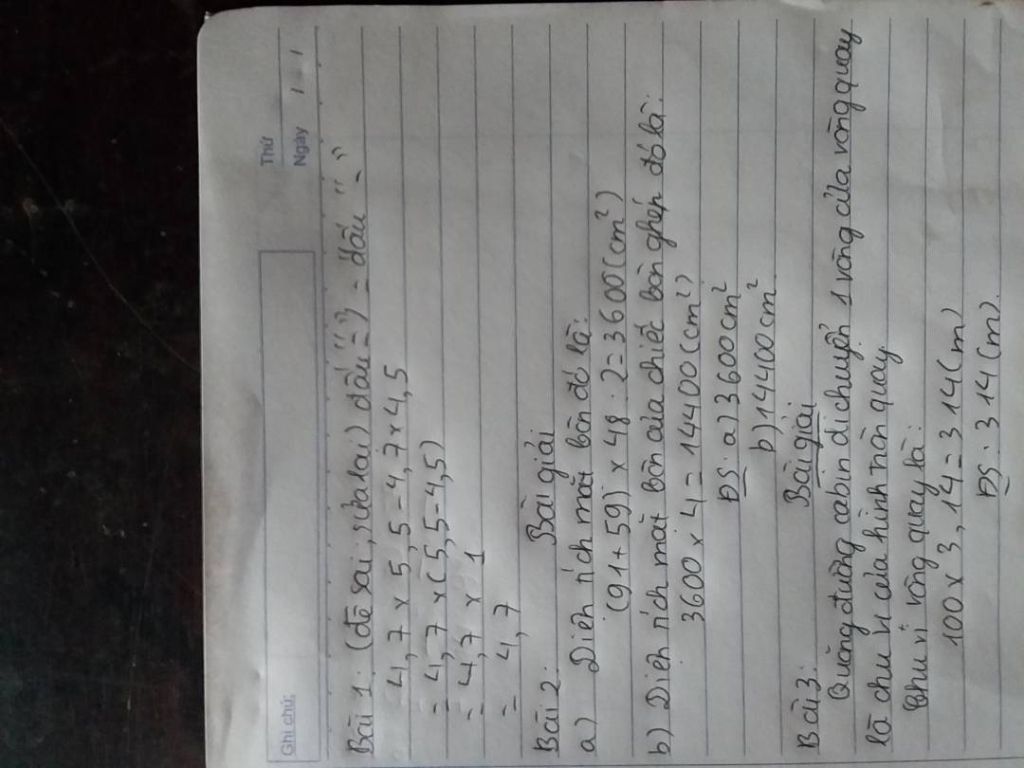 Ghi chú:
Thứ
Ngày / /
Bài 1: (đề sai, sửa lại) dấu "=" → dấu "-"
4,7 x 5,5 - 4,7 x 4,5
= 4,7 x (5,5 - 4,5)
= 4,7 x 1
= 4,7
Bài 2: Bài giải
a) Diện tích mặt bàn đó là:
(91 + 59) x 48 : 2 = 3600 (cm²)
b) Diện tích mặt bàn của chiếc bàn ghép đó là:
3600 x 4 = 14400 (cm²)
ĐS: a) 3600 cm²
b) 14400 cm²
Bài 3: Bài giải
Quãng đường cabin di chuyển 1 vòng của vòng quay
là chu vi của hình tròn quay
Chu vi vòng quay là:
100 x 3,14 = 314 (m)
ĐS: 314 (m).